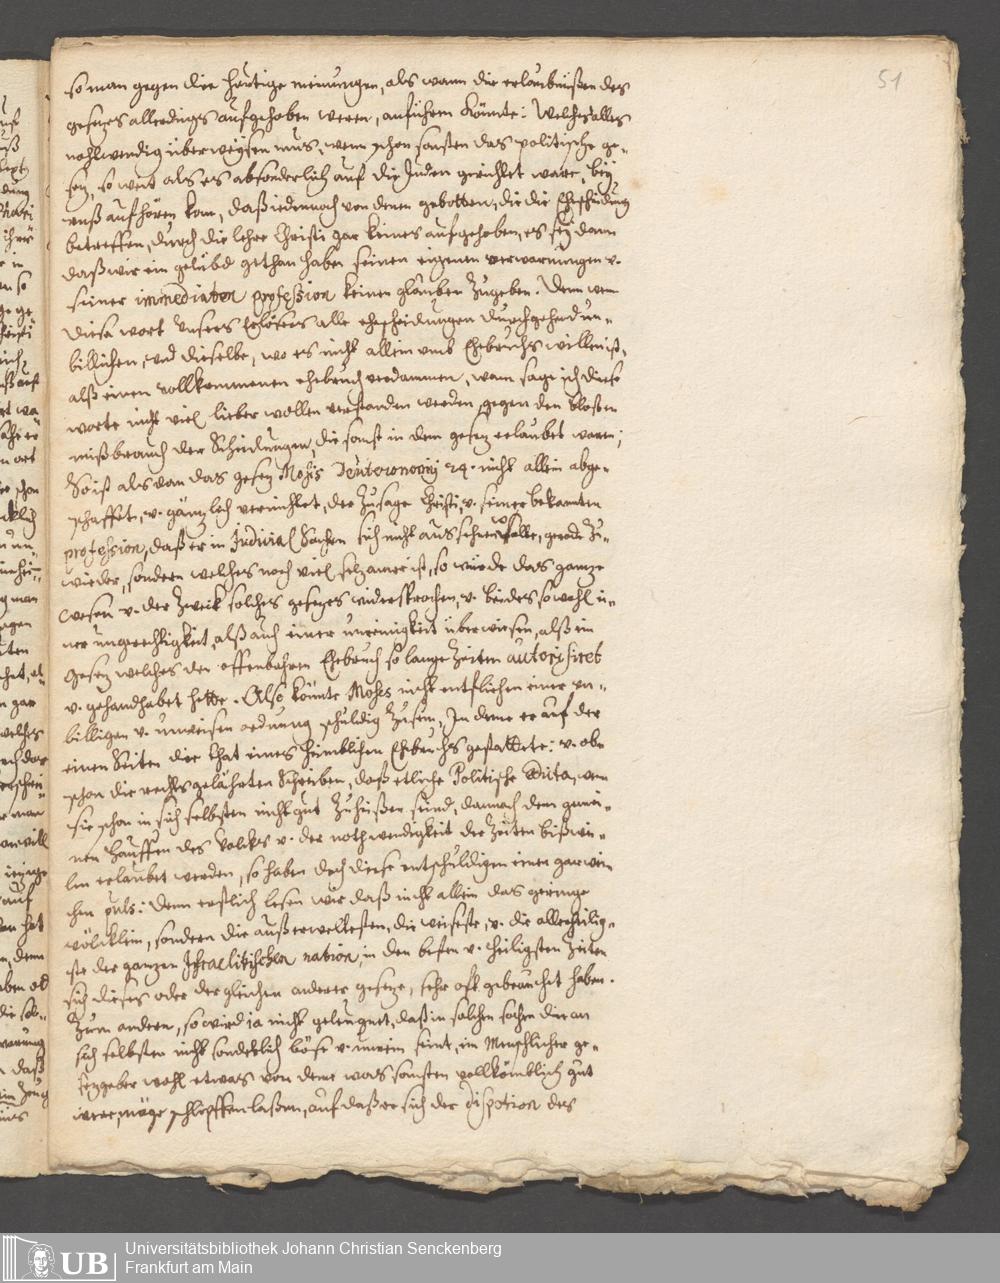 51
so man gegen die heütige meinungen, als wann die erlaubnüßen des
gesezes allerdings aufgehoben weren, anführen könnte: Welches alles
nohtwendig überweysen mus, wenn schon sonsten das politische ge-
sez, so weit als es absonderlich auf die Juden gerichtet ware, bey
unß aufhören kan, daß iedennoch von denen gebotten, die die Ehescheidung
betreffen, durch die lehre Christi gar keines aufgehoben, es sey dann
daß wir ein gelübd gethan haben seinen eigenen verwarnungen v.
seiner immediaten profession keinen glauben zugeben. Denn wenn
diese wort Unsers Erlösers alle ehescheidungen durchgehend un-
billichen, und dieselbe, wo es nicht allein umb Ehebruchs willen ist,
alß einen vollkommenen ehebruch verdammen, wann sage ich diese
worte nicht viel lieber wollen verstanden werden gegen den blossen
mißbrauch der Scheidungen, die sonst in dem gesez erlaubet waren;
So ist als dan das gesez Mosis Deuteronomij 24. nicht allein abge-
schaffet, v. gänzlich vernichtet, der zusage Christi, v. seiner bekannten
profession, daß er in Judicial Sachen sich nicht aus schen wolle, gerade zu-
wieder, sondern welches noch viel selzamer ist, so würde das ganze
wesen v. der zweck solches gesezes widersprochen, v. beedes sowohl ei-
ner ungerechtigkeit, alß auch einer unreinigkeit überwiesen, alß ein
gesez welches den offenbahren Ehebruch so lange zeiten autorisiret
v. gehandhabet hette. Also könnte Moses nicht entfliehen einer un-
billigen v. unweisen ordnung schuldig zu sein, In deme er auf der
einen Seiten die that eines heimblichen Ehebruchs gestattete: v. ob
schon die rechtsgelährten Schreiben, daß etliche Politische Edicta, wenn
sie schon in sich selbsten nicht gut zuheißen seind, dannoch dem gemei-
nen hauffen des Volckes v. der nothwendigkeit der Zeiten bißwei-
len erlaubet werden, so haben doch diese entschuldigen einen gar wei-
chen puls: denn erstlich lesen wir daß nicht allein das geringe
völcklein, sondern die außerwelltesten, die weiseste, v. die allerheilig-
ste der ganzen Israelitischen nation, in den besten v. heiligsten Zeiten
sich dieses oder dergleichen anderer geseze, sehr oft gebraucht haben.
Zum andern, so wird ia nicht geleugnet, daß in solchen sachen die an
sich selbsten nicht sonderlich böse v. unrein seint, ein Menschlicher ge-
sezgeber wohl etwas von deme was sonsten vollkömblich gut
were, möge schlopffen laßen, auf daß er sich der dispotion des
Universitätsbibliothek Johann Christian Senckenberg
Frankfurt am Main
UB